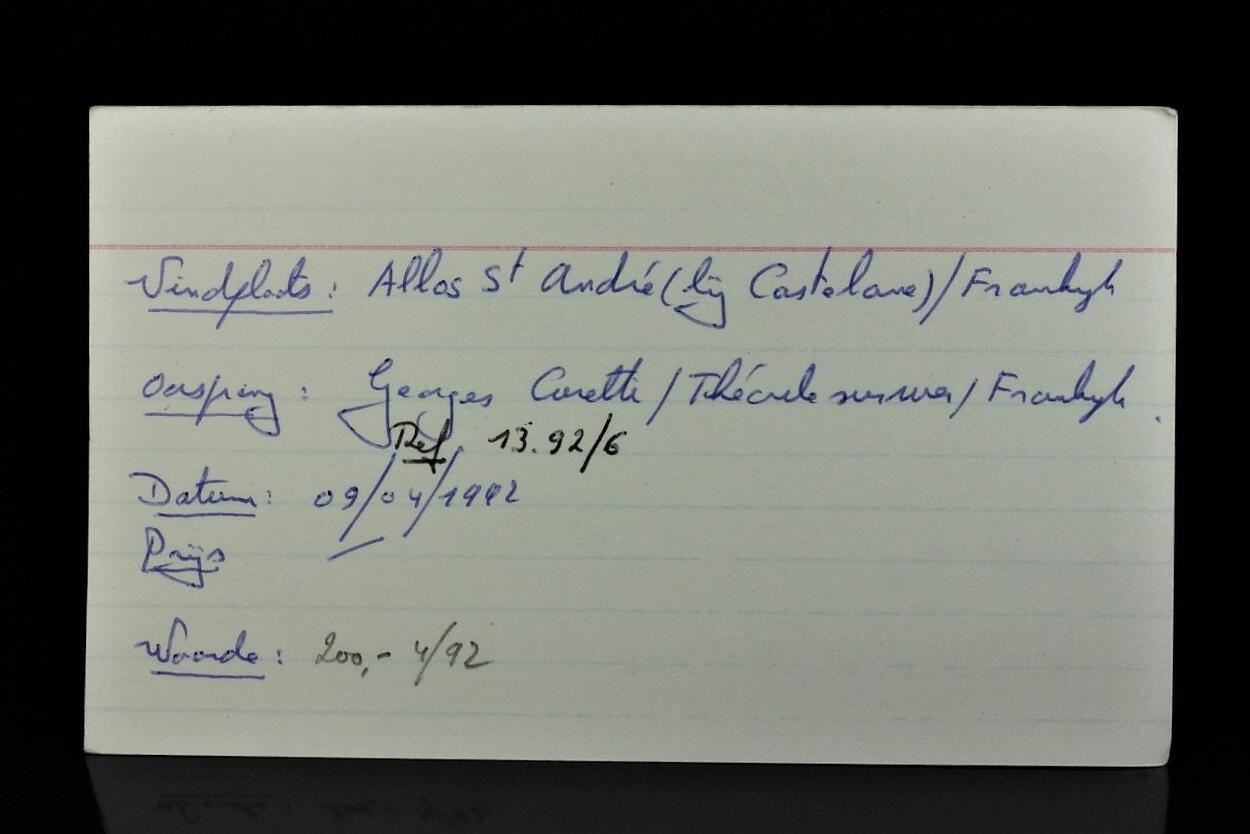 Vindplaats: Allos St André (bij Castelane) / Frankrijk
Oorsprong: Georges / Théoule sur mer / Frankrijk.
Ref. 13.92/6
Datum: 09/04/1992
Prijs —
Waarde: 200,- 4/92